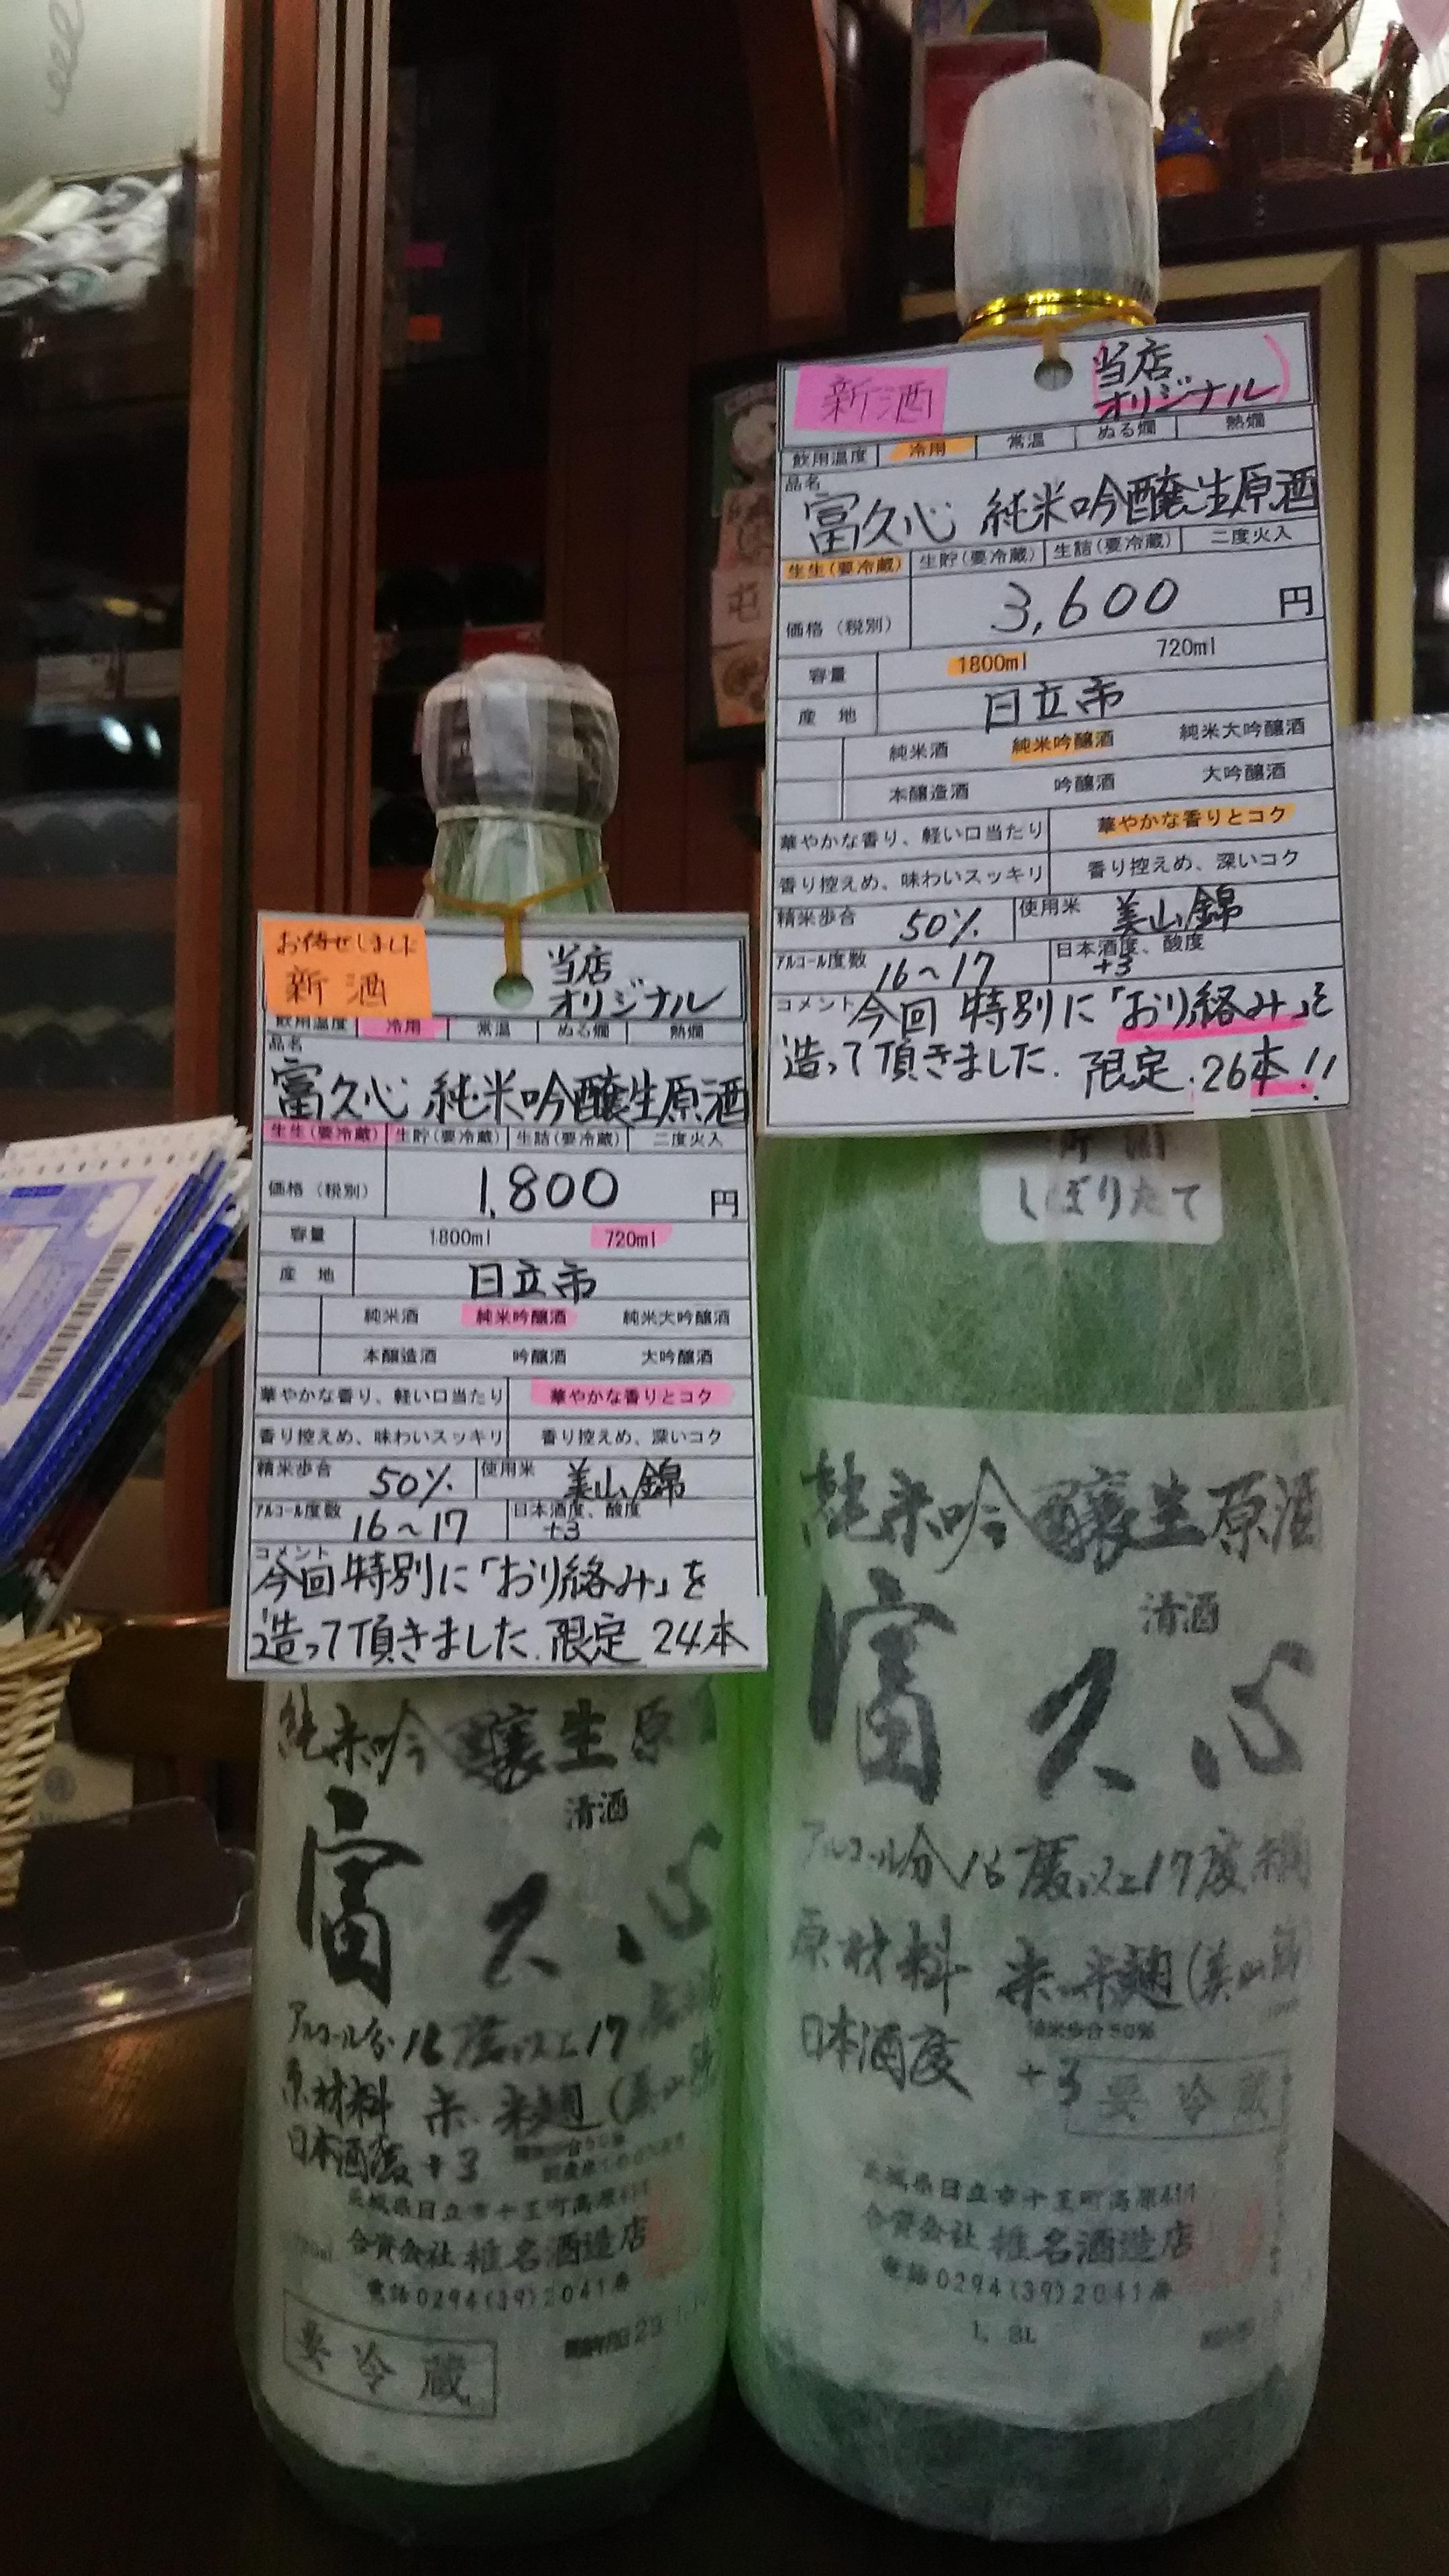 新酒
当店
オリジナル
飲用温度 冷用 常温 ぬる燗 熱燗
品名
富久心 純米吟醸生原酒
生生(要冷蔵) 生貯(要冷蔵) 生詰(要冷蔵) 二度火入
価格(税別) 3,600 円
容量 1800ml 720ml
産地 日立市
純米酒 純米吟醸酒 純米大吟醸酒
本醸造酒 吟醸酒 大吟醸酒
華やかな香り、軽い口当たり 華やかな香りとコク
香り控えめ、味わいスッキリ 香り控えめ、深いコク
精米歩合 50% 使用米 美山錦
アルコール度数 16~17 日本酒度、酸度 +3
コメント 今回 特別に「おり絡み」を
造って頂きました. 限定.26本!!
しぼりたて
純米吟醸生原酒
清酒
富久心
アルコール分 16度以上17度
原材料 米.米麹(美山
精米歩合50%
日本酒度 +3
要冷蔵
茨城県日立市十王町高原411
合資会社 椎名酒造店
電話0294(39)2041番
1.8L
お待せしました
新酒
当店
オリジナル
飲用温度 冷用 常温 ぬる燗 熱燗
品名
富久心 純米吟醸生原酒
生生(要冷蔵) 生貯(要冷蔵) 生詰(要冷蔵) 二度火入
価格(税別) 1,800 円
容量 1800ml 720ml
産地 日立市
純米酒 純米吟醸酒 純米大吟醸酒
本醸造酒 吟醸酒 大吟醸酒
華やかな香り、軽い口当たり 華やかな香りとコク
香り控えめ、味わいスッキリ 香り控えめ、深いコク
精米歩合 50% 使用米 美山錦
アルコール度数 16~17 日本酒度、酸度 +3
コメント
今回 特別に「おり絡み」を
造って頂きました.限定 24本
純米吟醸生原
清酒
富久心
アルコール分 16度以上17
原材料 米.米麹(美山
日本酒度 +3
茨城県日立市十王町高原411
合資会社 椎名酒造店
電話0294(39)2041番
要冷蔵